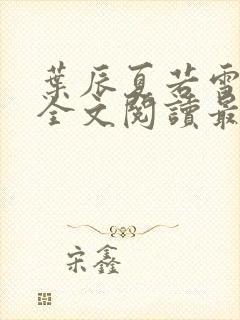 葉辰夏若雪
全文閱讀最
宋鑫